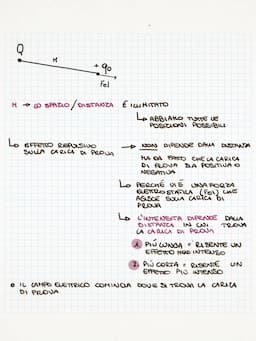 Q
r
+ q₀
Fel
r → LO SPAZIO / DISTANZA È ILLIMITATO
↳ ABBIAMO TUTTE LE
POSIZIONI POSSIBILI
↳ EFFETTO REPULSIVO
SULLA CARICA DI PROVA
→ NON DIPENDE DALLA DISTANZA
MA DAL FATTO CHE LA CARICA
DI PROVA SIA POSITIVA O
NEGATIVA
↳ PERCHÉ VI È UNA FORZA
ELETTROSTATICA (Fel) CHE
AGISCE SULLA CARICA DI
PROVA
↳ L'INTENSITÀ DIPENDE DALLA
DISTANZA IN CUI TROVA
LA CARICA DI PROVA
1 PIÙ LUNGA = RISENTE UN
EFFETTO MENO INTENSO
2 PIÙ CORTA = RISENTE UN
EFFETTO PIÙ INTENSO
• IL CAMPO ELETTRICO COMINCIA DOVE SI TROVA LA CARICA
DI PROVA